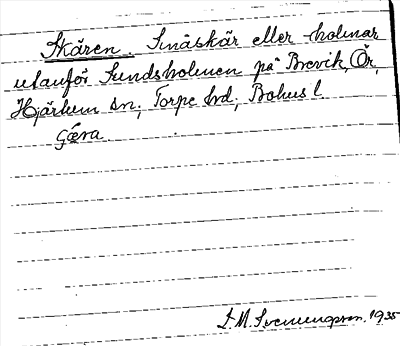 Skären. Småskär eller holmar
utanför Sundsholmen på Brevik, Ör,
Hjärtum sn; Torpe hd, Bohus l
Göra
S. M. Svenungsson. 1935